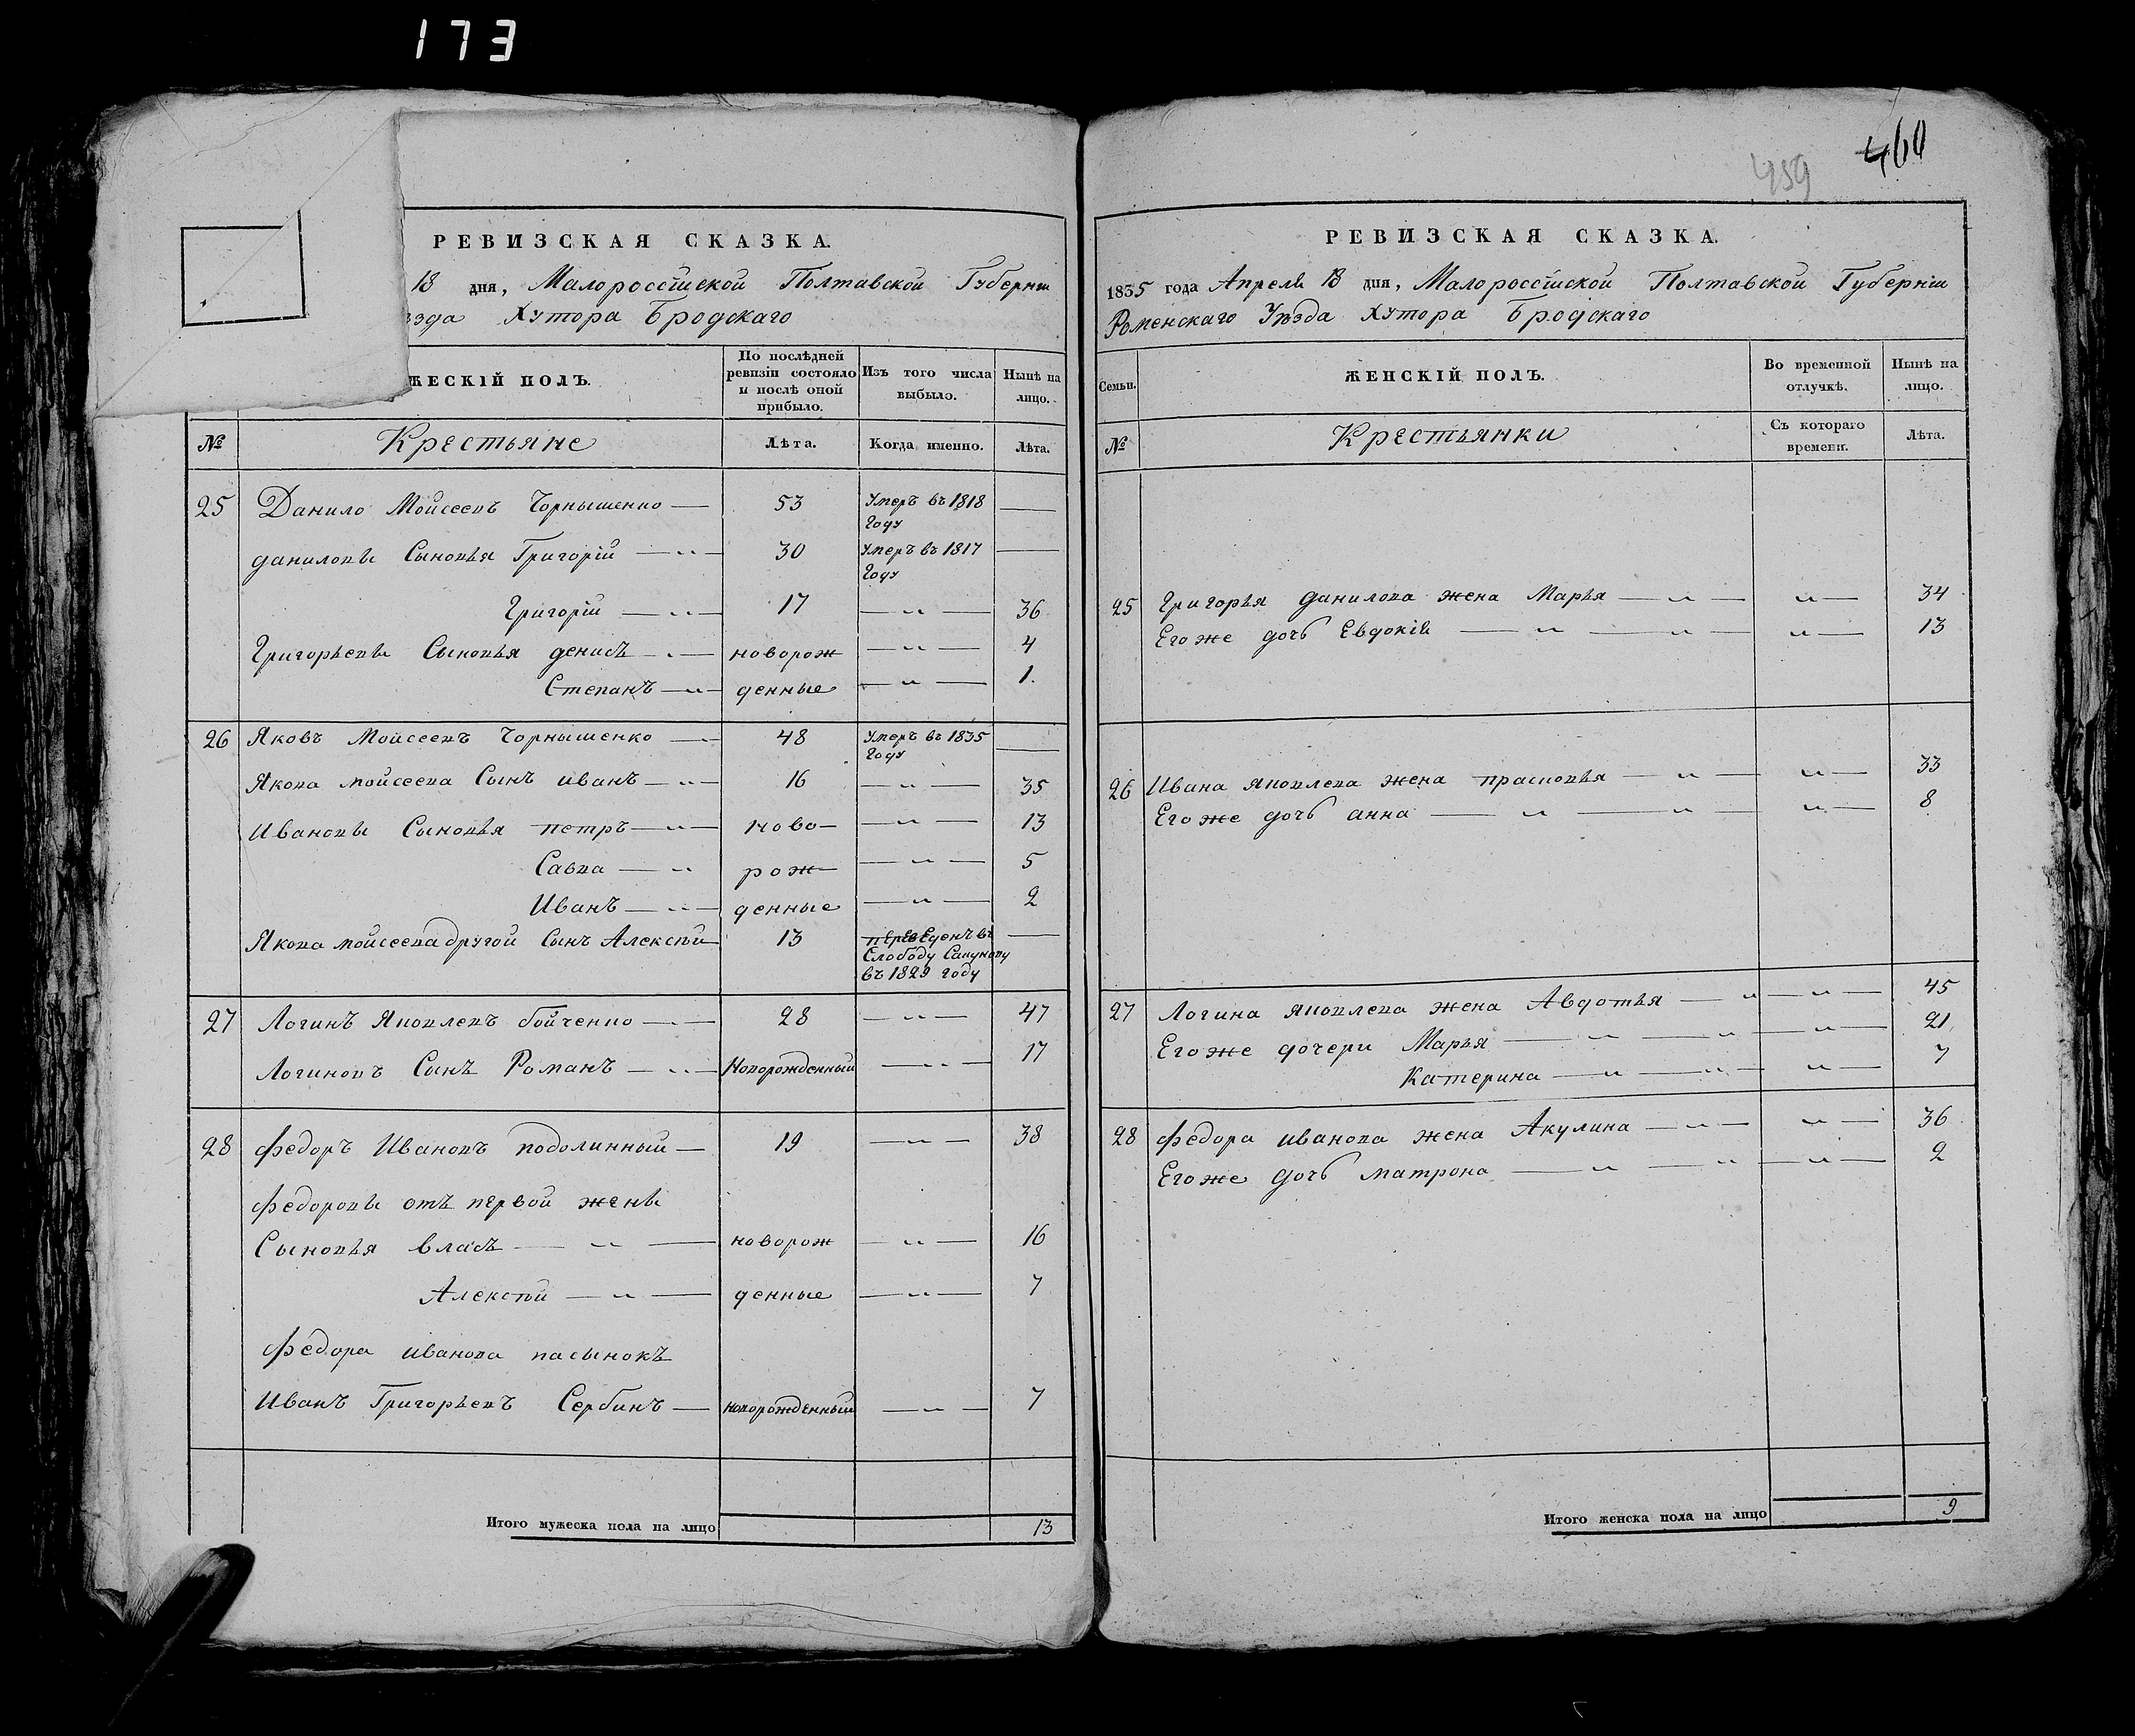 173
РЕВИЗСКАЯ СКАЗКА.
18 дня, Малороссійской Полтавской Губерніи
ѣзда Хутора Бродскаго
ЖЕСКІЙ ПОЛЪ.
По послѣдней ревизіи состояло и послѣ оной прибыло.
Изъ того числа выбыло.
Нынѣ на лицо.
№ Крестьяне Лѣта. Когда именно. Лѣта.
25 Данило Мойсеевъ Чорнышенко — 53 Умеръ въ 1818 Году —
Даниловы Сыновья Григорій — „ — 30 Умеръ въ 1817 Году —
Григорій — „ — 17 — „ — 36
Григорьевы Сыновья Денисъ — „ — новорож — „ — 4
Степанъ — „ — денные — „ — 1.
26 Яковъ Мойсеевъ Чорнышенко — 48 Умеръ въ 1835 Году —
Якова Мойсеева Сынъ Иванъ — „ — 16 — „ — 35
Ивановы Сыновья Петръ — „ — ново- — „ — 13
Савва — „ рож- — „ — 5
Иванъ — „ — денные — „ — 2
Якова Мойсеева другой Сынъ Алексѣй 13 переведенъ въ Слободу Сакунову въ 1829 году —
27 Логинъ Яковлевъ Бойченко — „ — 28 — „ — 47
Логиновъ Сынъ Романъ — „ — Новорожденный — „ — 17
28 Федоръ Ивановъ Подолинный — 19 — „ — 38
Федоровы отъ первой жены
Сыновья Власъ — „ — новорож — „ — 16
Алексѣй — „ — денные — „ — 7
Федора Иванова пасынокъ
Иванъ Григорьевъ Сербинъ — новорожденный — „ — 7
Итого мужеска пола на лицо 13
459 460
РЕВИЗСКАЯ СКАЗКА.
1835 года Апреля 18 дня, Малороссійской Полтавской Губерніи
Роменскаго Уѣзда Хутора Бродскаго
Семьи. ЖЕНСКІЙ ПОЛЪ. Во временной отлучкѣ. Нынѣ на лицо.
№ Крестьянки Съ котораго времени. Лѣта.
25 Григорья Данилова жена Марья — „ — „ — 34
Его же дочь Евдокія — „ — „ — „ — 13
26 Ивана Яковлева жена Прасковья — „ — „ — 33
Его же дочь Анна — „ — „ — „ — 8
27 Логина Яковлева жена Авдотья — „ — „ — 45
Его же дочери Марья — „ — „ — „ — 21
Катерина — „ — „ — „ — 7
28 Федора Иванова жена Акулина — „ — „ — 36
Его же дочь Матрона — „ — „ — „ — 2
Итого женска пола на лицо 9